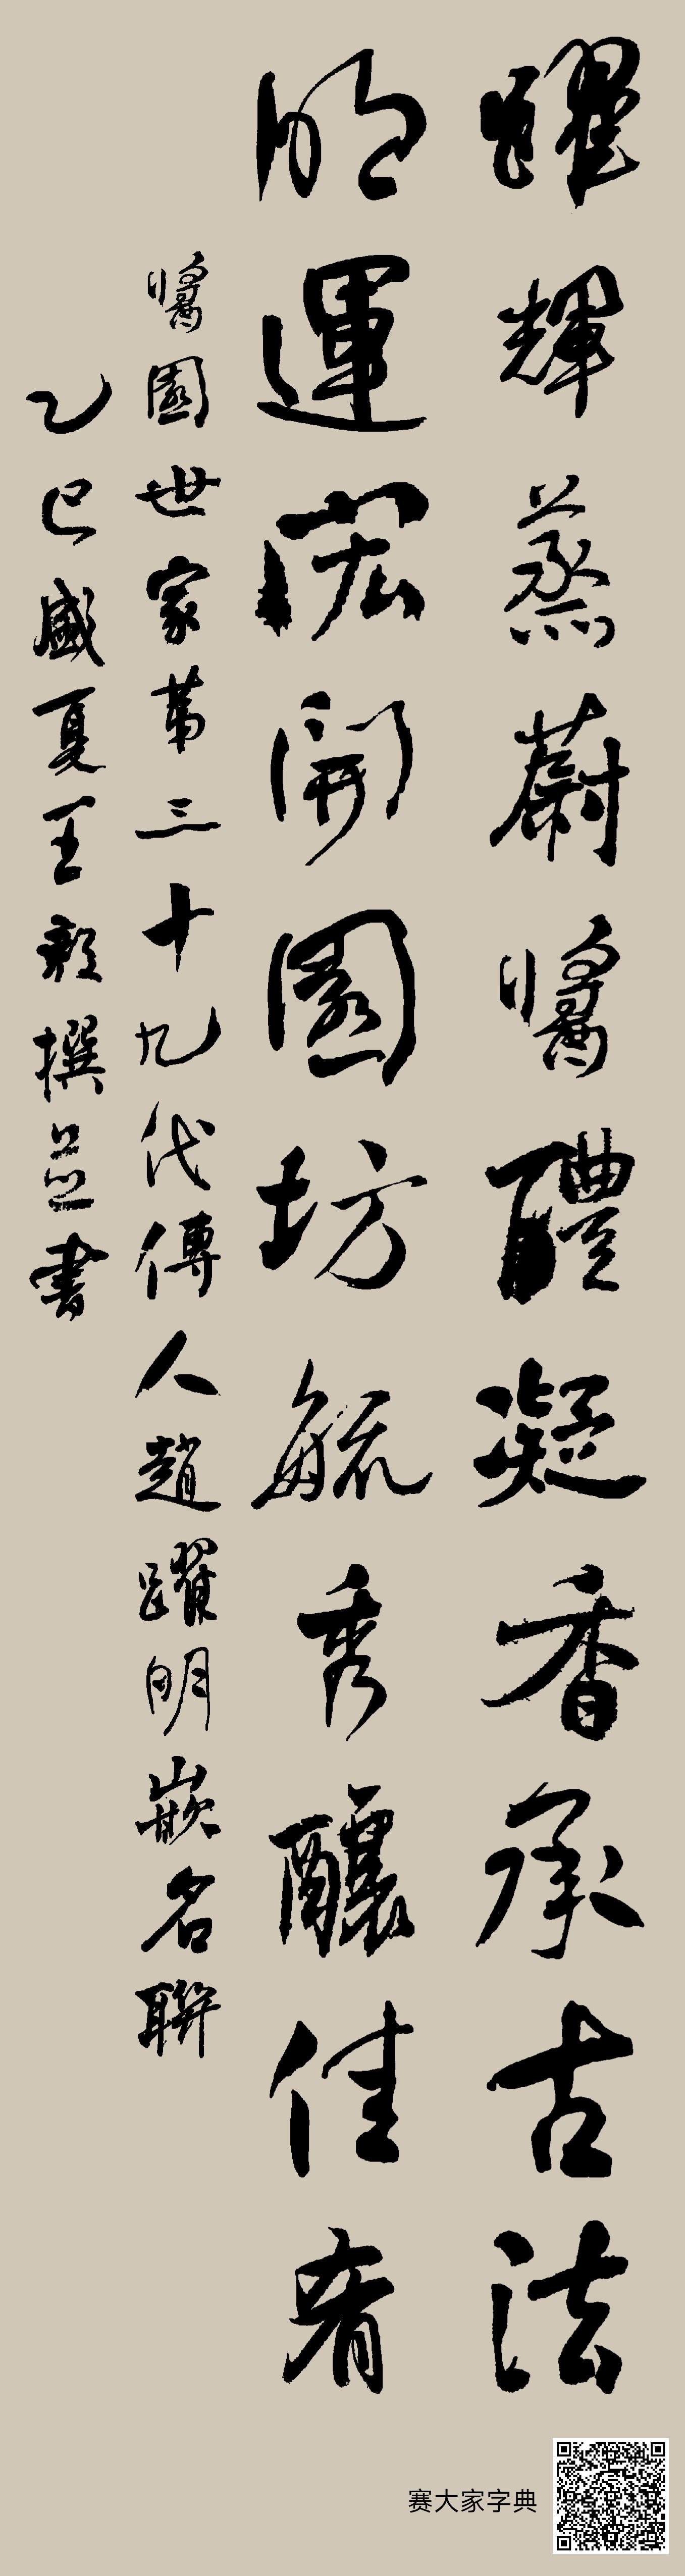 躍輝蒸蔚醬醴凝香承古法
明運宏開園坊毓秀釀佳肴
醬園世家第三十九代傳人趙躍明嵌名聯
乙巳盛夏王毅撰並書
赛大家字典